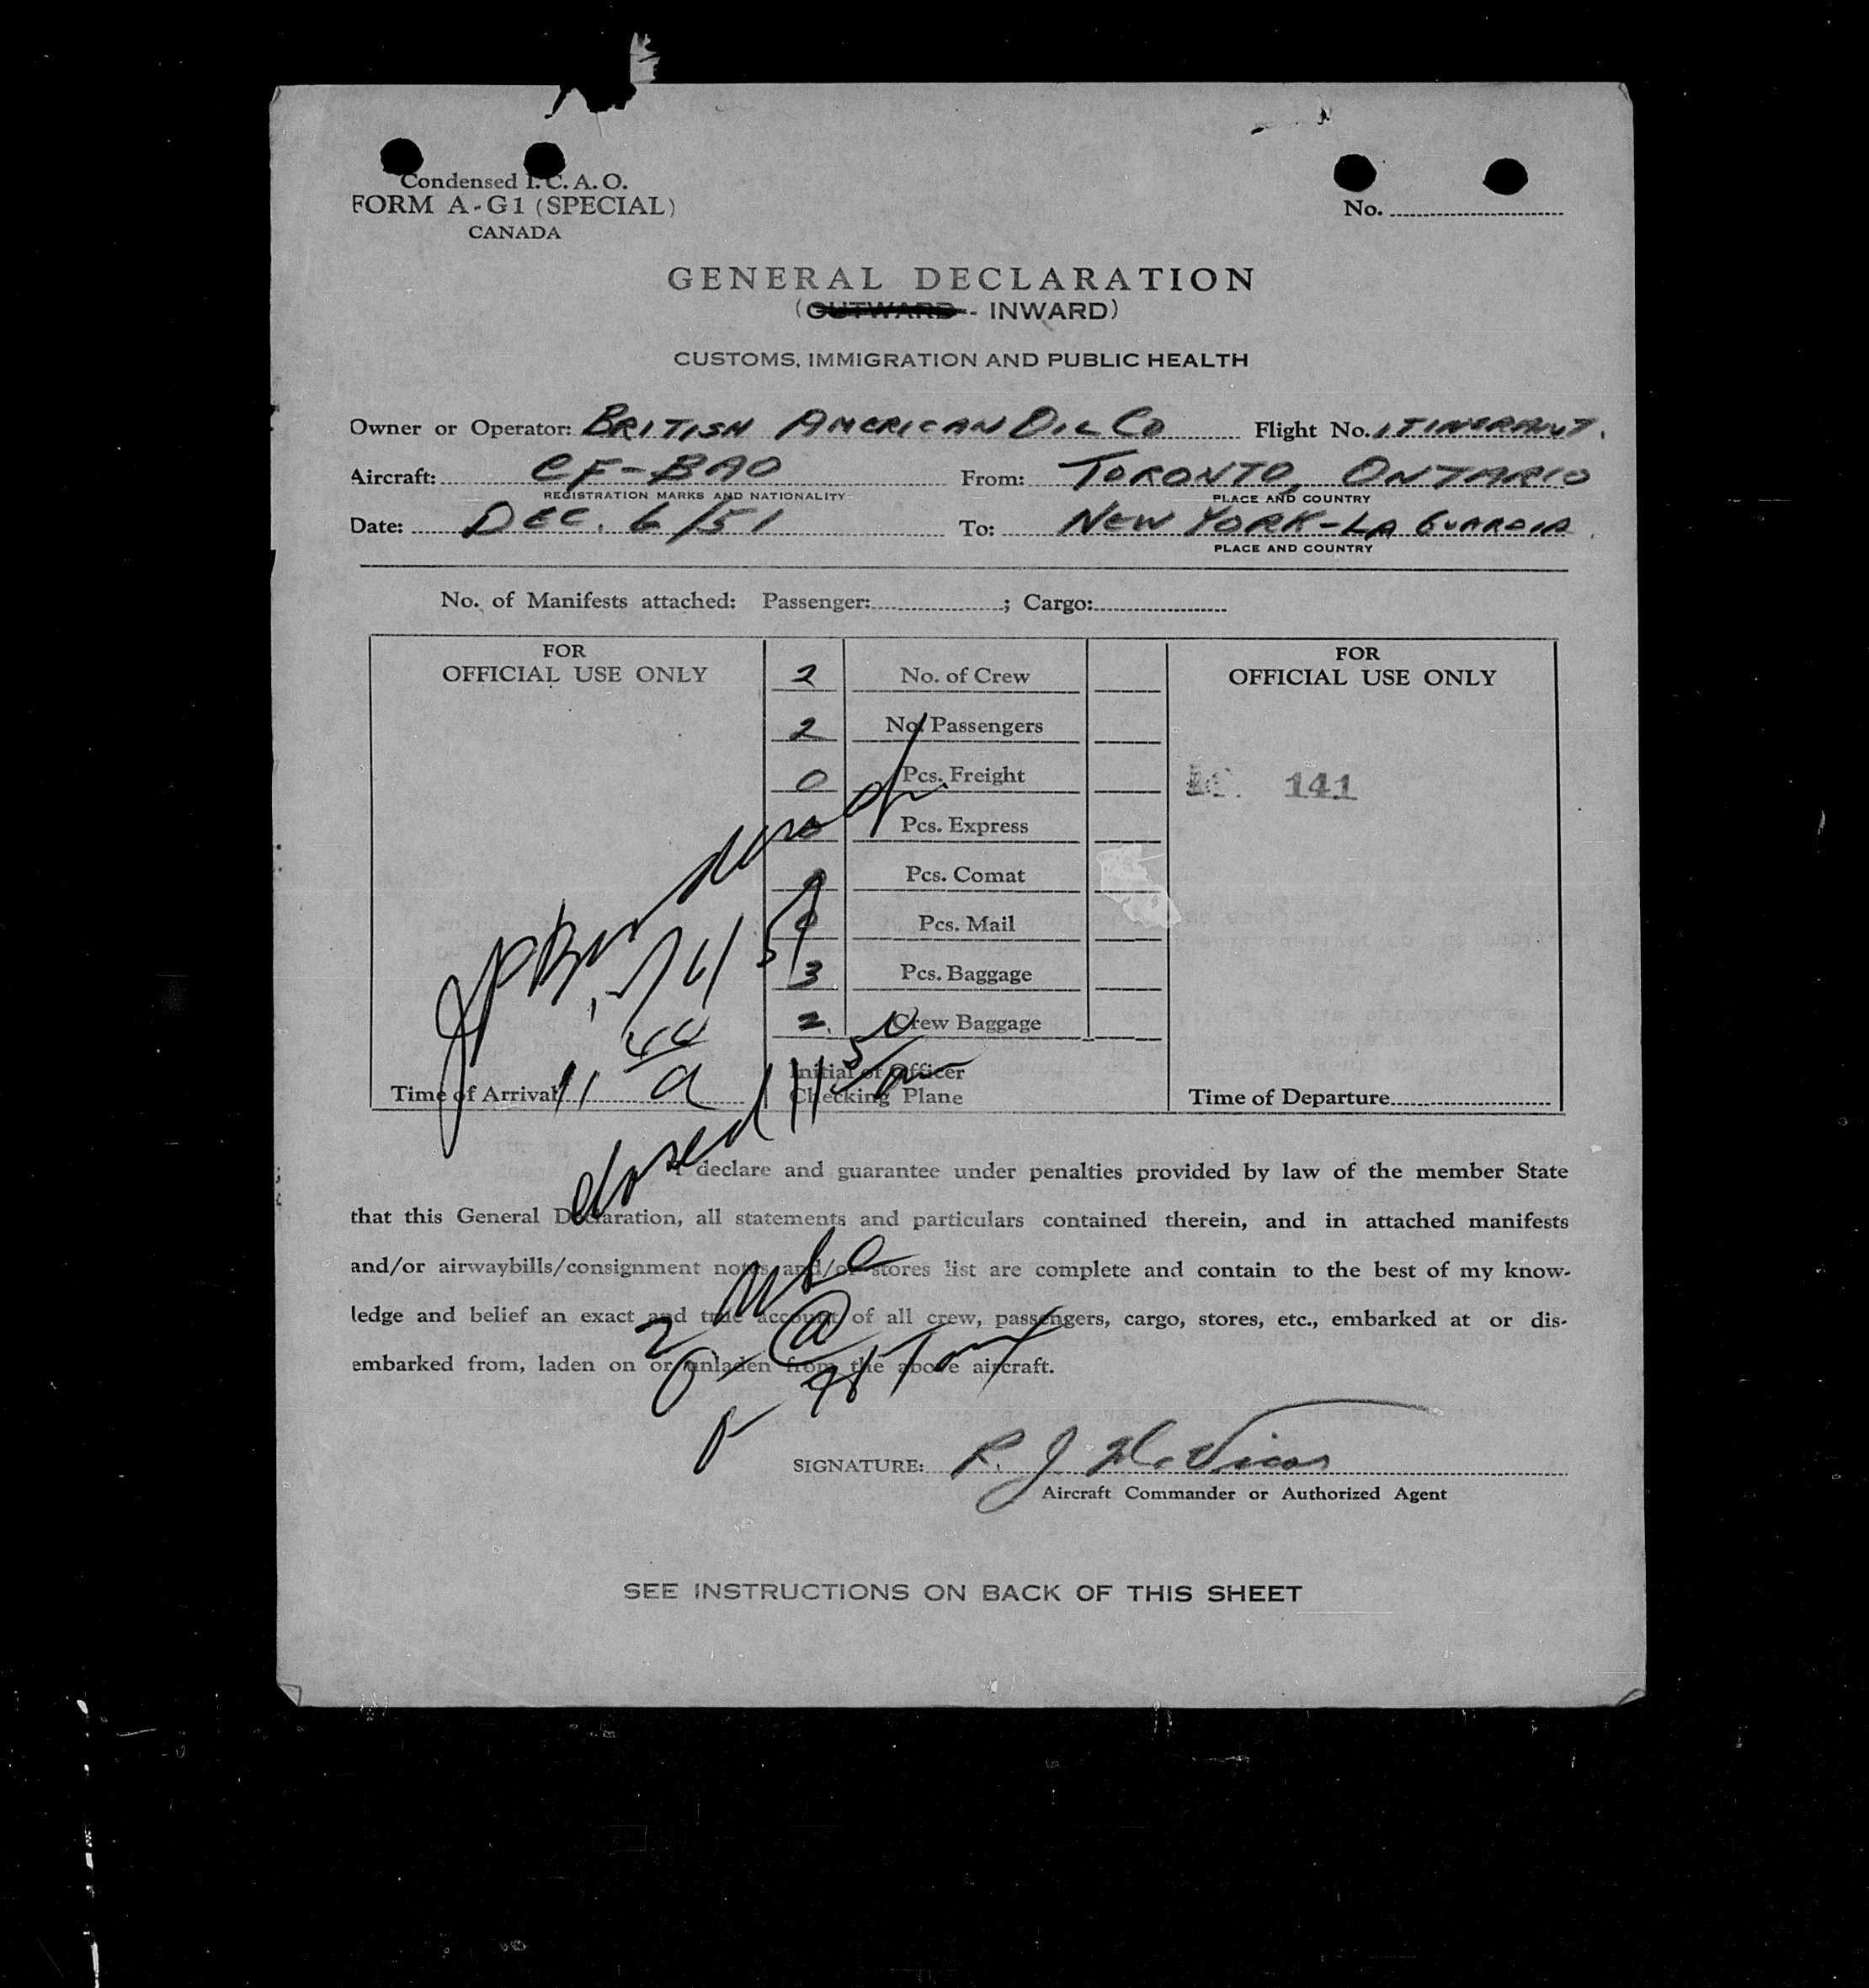 Condensed I.C.A.O.
FORM A-G1 (SPECIAL)
CANADA
No.
GENERAL DECLARATION
(OUTWARD - INWARD)
CUSTOMS, IMMIGRATION AND PUBLIC HEALTH
Owner or Operator: BRITISH AMERICAN OIL CO Flight No. ITINERANT.
Aircraft: CF-BAO From: TORONTO, ONTARIO
REGISTRATION MARKS AND NATIONALITY PLACE AND COUNTRY
Date: DEC. 6/51 To: NEW YORK-LA GUARDIA
PLACE AND COUNTRY
No. of Manifests attached: Passenger: ; Cargo:
FOR
OFFICIAL USE ONLY
2 No. of Crew
FOR
OFFICIAL USE ONLY
2 No. Passengers
0 Pcs. Freight
141
0 Pcs. Express
0 Pcs. Comat
0 Pcs. Mail
3 Pcs. Baggage
2 Crew Baggage
Time of Arrival 11 44 a
Initial of Officer
Checking Plane
Time of Departure
closed 11 50 am
I declare and guarantee under penalties provided by law of the member State
that this General Declaration, all statements and particulars contained therein, and in attached manifests
and/or airwaybills/consignment notes and/or stores list are complete and contain to the best of my know-
ledge and belief an exact and true account of all crew, passengers, cargo, stores, etc., embarked at or dis-
embarked from, laden on or unladen from the above aircraft.
SIGNATURE: R. J. McVicar
Aircraft Commander or Authorized Agent
SEE INSTRUCTIONS ON BACK OF THIS SHEET